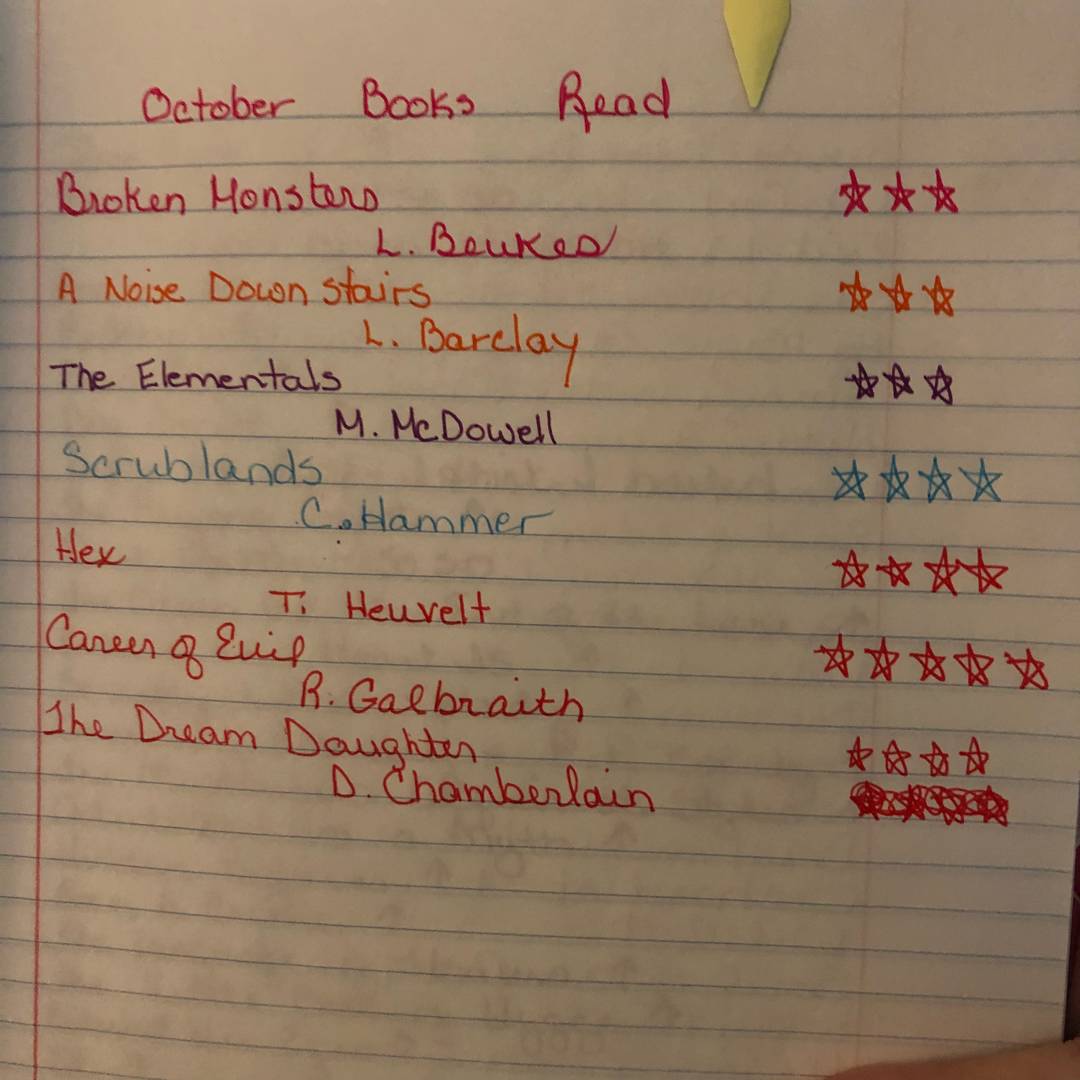 October Books Read
Broken Monsters ☆☆☆
L. Beukes
A Noise Down stairs ☆☆☆
L. Barclay
The Elementals ☆☆☆
M. McDowell
Scrublands ☆☆☆☆
C. Hammer
Hex ☆☆☆☆
T. Heuvelt
Career of Evil ☆☆☆☆☆
R. Galbraith
The Dream Daughter ☆☆☆☆
D. Chamberlain